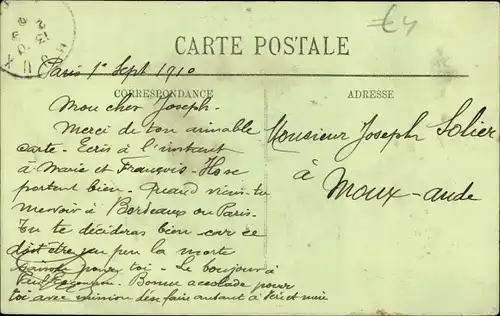 €4
CARTE POSTALE
Paris 1e Sept 1910
CORRESPONDANCE
ADRESSE
Mon cher Joseph.
Merci de ton aimable
carte. Ecris à l'instant
à Marie et François.
portent bien. Quand viens-tu
me voir à Bordeaux ou Paris.
Tu te décideras bien car ce
doit être un peu la morte
saison pour toi. Le bonjour à
Bonne accolade pour
toi avec mission d'en faire autant à
Monsieur Joseph Solier
à
Moux-aude